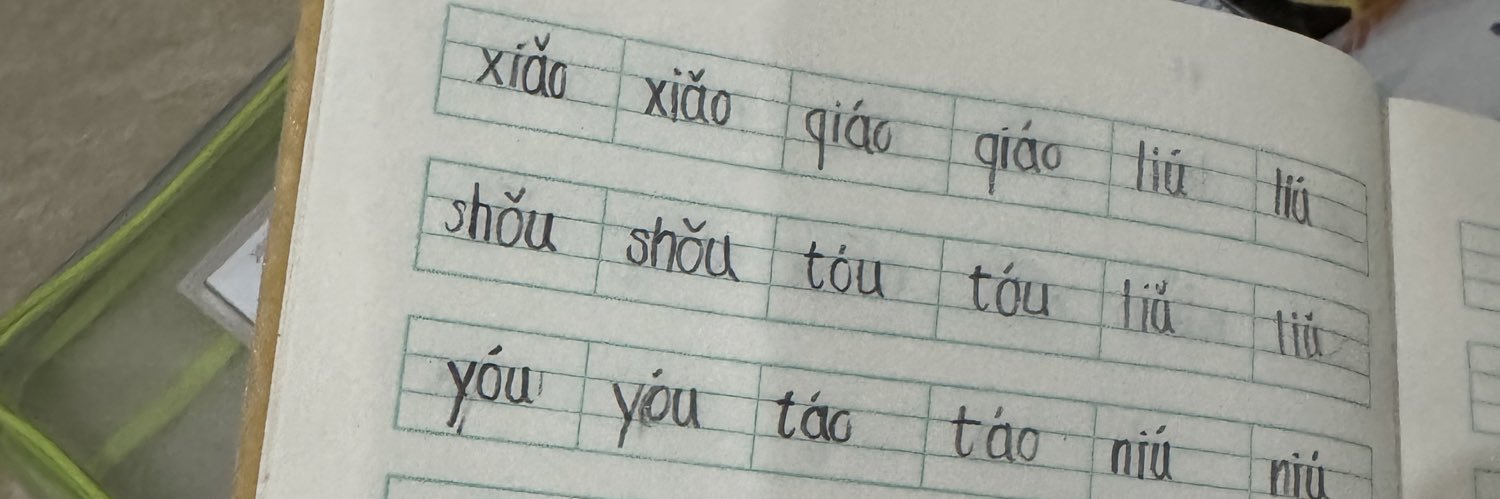 xiǎo xiǎo qiáo qiáo liú liú
shǒu shǒu tóu tóu liǔ liǔ
yóu yóu táo táo niú niú